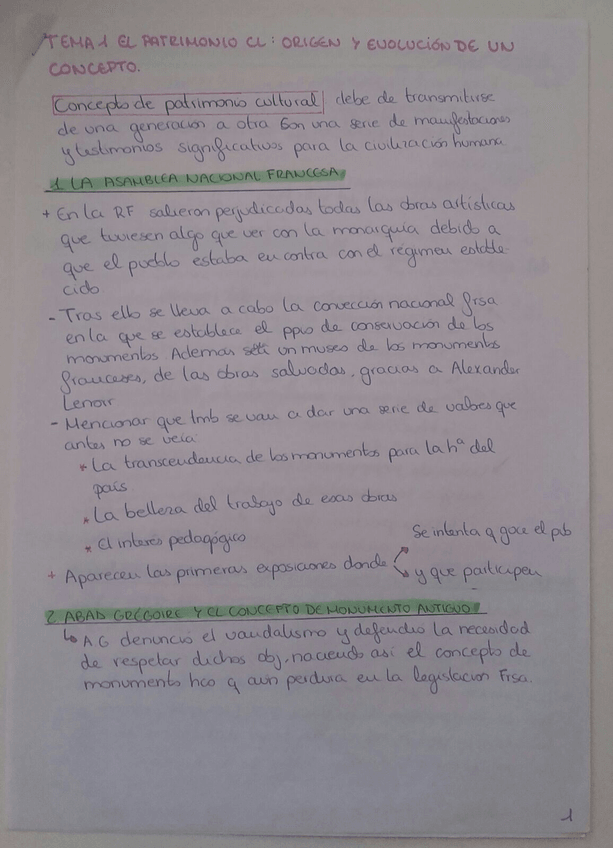 TEMA 1 EL PATRIMONIO CL: ORIGEN Y EVOLUCIÓN DE UN
CONCEPTO.
Concepto de patrimonio cultural debe de transmitirse
de una generación a otra Son una serie de manifestaciones
y testimonios significativos para la civilización humana
1 LA ASAMBLEA NACIONAL FRANCESA
+ En la RF salieron perjudicadas todas las obras artísticas
que tuviesen algo que ver con la monarquía debido a
que el pueblo estaba en contra con el regimen estable
cido
- Tras ello se lleva a cabo la convección nacional frsa
en la que se establece el ppio de conservación de los
monumentos Ademas un museo de los monumentos
franceses, de las obras salvadas, gracias a Alexander
Lenoir
- Mencionar que tmb se van a dar una serie de valores que
antes no se veía:
* La transcendencia de los monumentos para la hª del
país
* La belleza del trabajo de esas obras
* El interés pedagógico
Se intenta q goce el pub
+ Aparecen las primeras exposiciones donde
y que participen
2 ABAD GRÉGOIRE Y EL CONCEPTO DE MONUMENTO ANTIGUO
↳ AG denunció el vandalismo y defendió la necesidad
de respetar dichos obj, naciendo así el concepto de
monumento hco q aún perdura en la legislación Frsa.
1